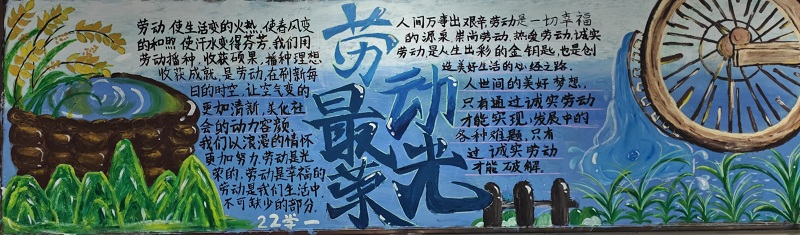 劳动,使生活变的火热,使春风变
的和煦,使汗水变得芬芳,我们用
劳动播种,收获硕果,播种理想
收获成就,是劳动,在刷新每
日的时空,让空气变的
更加清新,美化社
会的动力容颜,
我们以浪漫的情怀
更加努力,劳动是光
荣的,劳动是幸福的
劳动是我们生活中,
不可缺少的部分,
22学一
劳动
最光
荣
人间万事出艰辛劳动是一切幸福
的源泉,崇尚劳动,热爱劳动,诚实
劳动是人生出彩的金钥匙,也是创
造美好生活的必经之路.
人世间的美好梦想,
只有通过诚实劳动
才能实现,发展中的
各种难题,只有
过诚实劳动
才能破解.